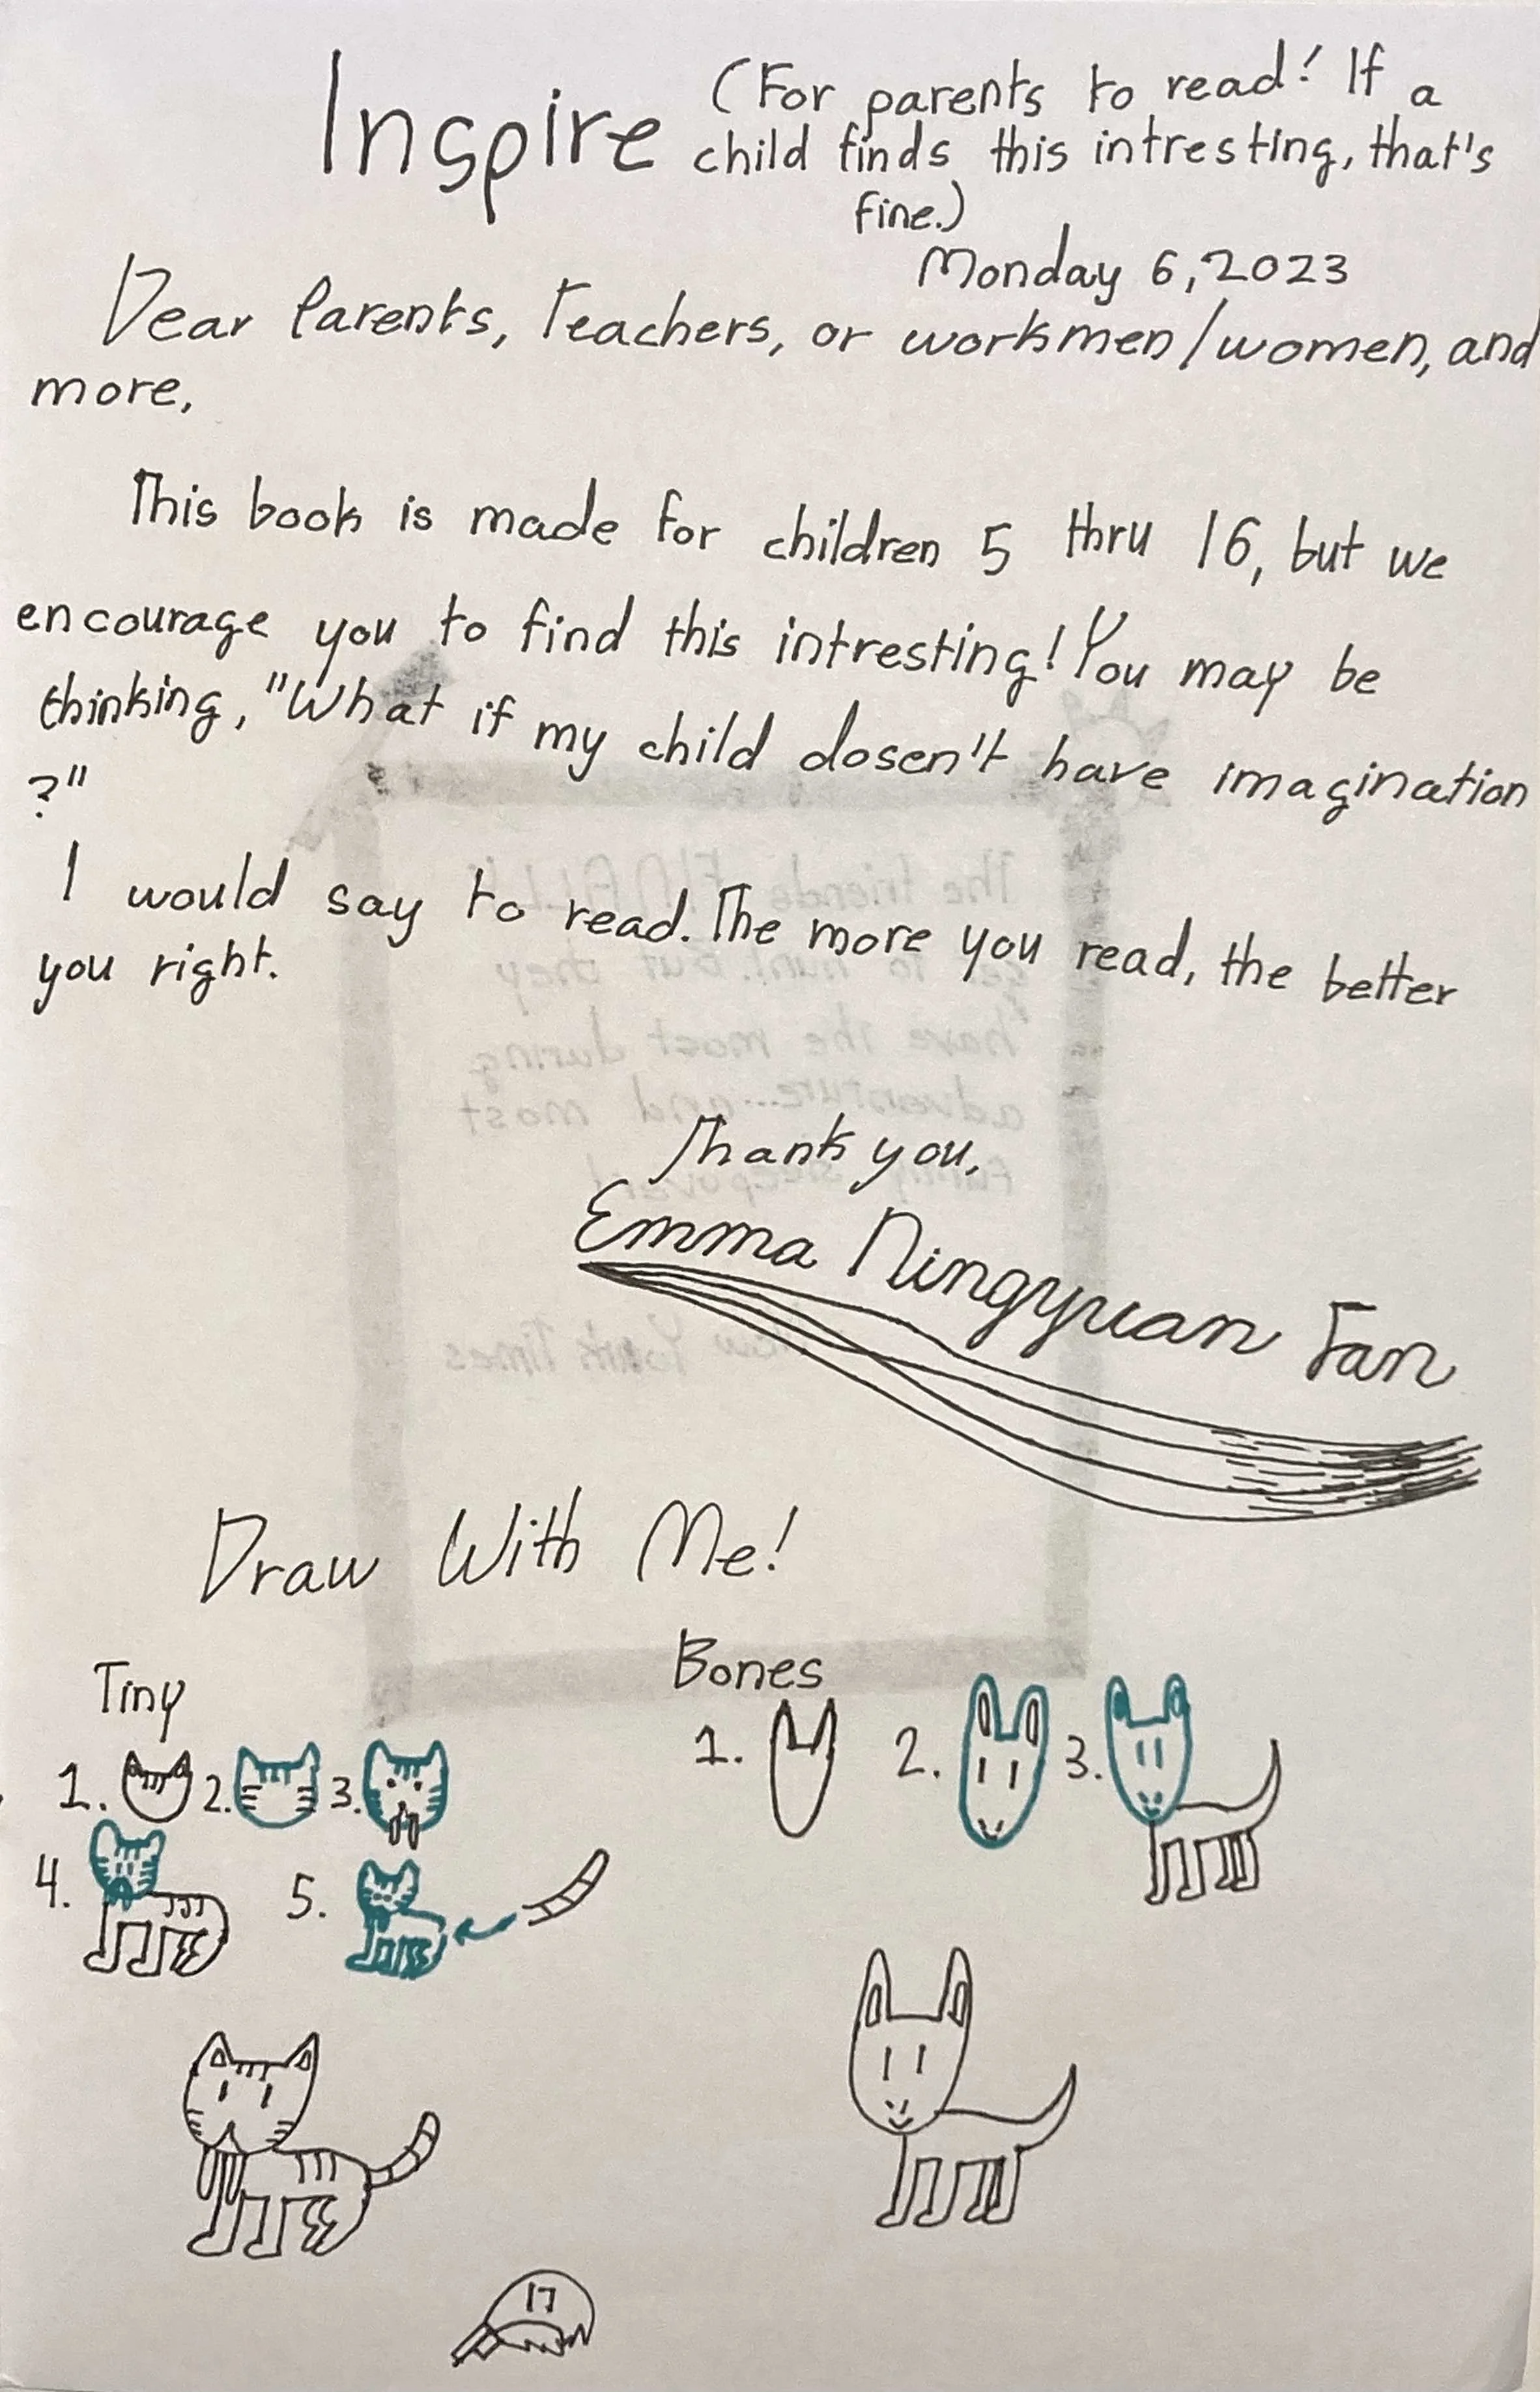 Inspire (For parents to read! If a
child finds this intresting, that's
fine.)
Monday 6, 2023
Dear Parents, Teachers, or workmen/women, and
more,
This book is made for children 5 thru 16, but we
encourage you to find this intresting! You may be
thinking, "What if my child dosen't have imagination
?"
I would say to read. The more you read, the better
you right.
Thank you,
Emma Ningyuan Fan
Draw With Me!
Tiny
1. 2. 3.
4. 5.
Bones
1. 2. 3.
17
The friends FINALLY
get to hunt! But they
have the most during
adventure... and most
funny sleepover!
New York Times